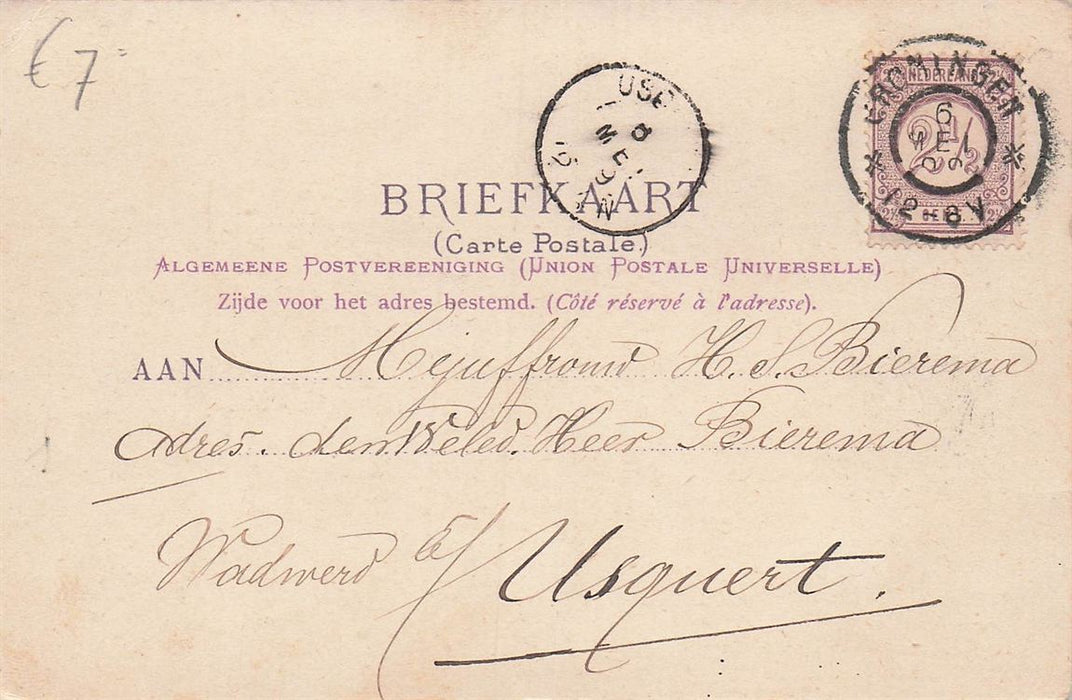 € 7=
USE
8
ME
N
NEDERLAND
2½
GRONINGEN
6
ME
12-6V
BRIEFKAART
(Carte Postale.)
ALGEMEENE POSTVEREENIGING (UNION POSTALE UNIVERSELLE)
Zijde voor het adres bestemd. (Côté réservé à l'adresse).
AAN Mejuffrouw H. S. Bierema
Adres. den Weled. Heer Bierema
Wadwerd b/ Usquert.